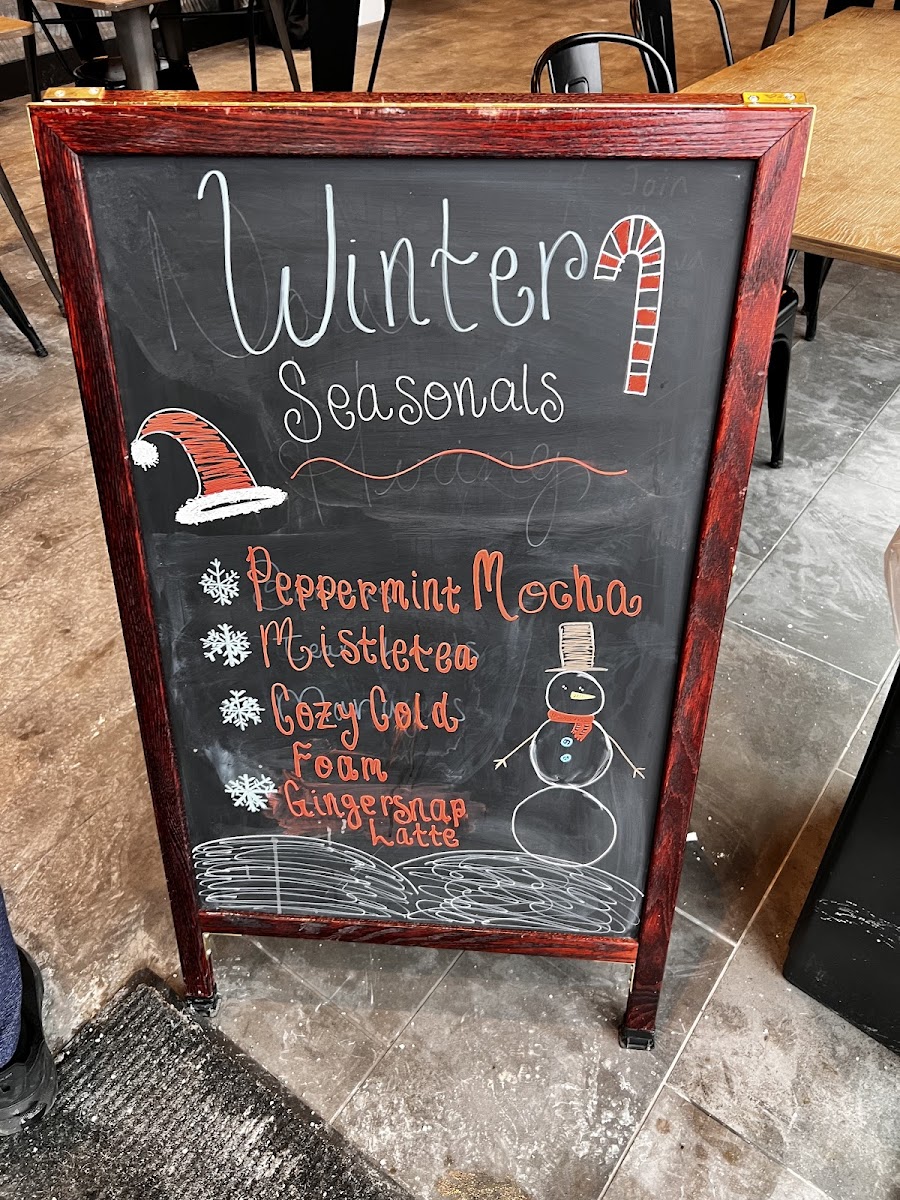 Winter
Seasonals
Peppermint Mocha
Mistletea
Cozy Cold
Foam
Gingersnap
Latte